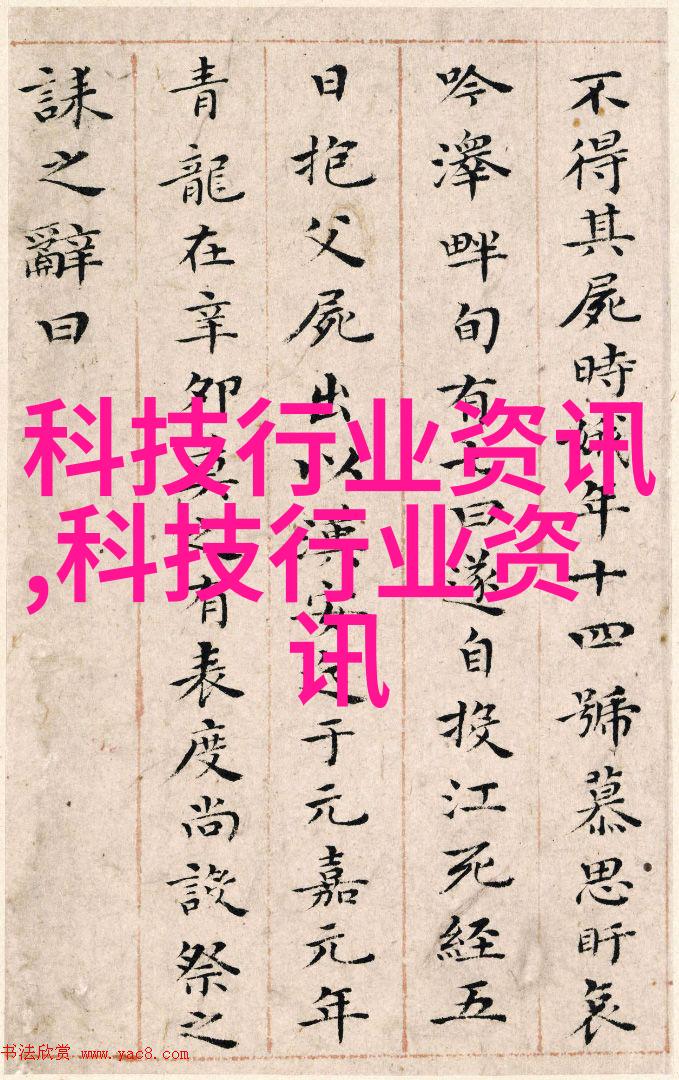 不得其屍時娥年十四號慕思盱哀
吟澤畔旬有七日遂自投江死經五
日抱父屍出以漢安迄于元嘉元年
青龍在辛卯莫之有表度尚設祭之
誄之辭曰
科技行业资讯
,科技行业资
讯
书法欣赏 www.yac8.com